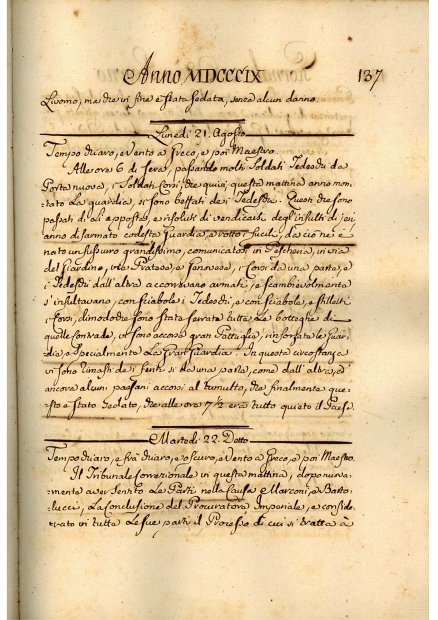 Anno MDCCCIX 137
Livorno, ma che in fine è stata sedata, senza alcun danno.
Lunedì 21. Agosto
Tempo chiaro, e Vento a Greco, e poi Maestro.
Alle ore 6 di sera, passando molti Soldati Tedeschi da
Porta nuova, i Soldati Corsi, che quivi questa mattina anno mon-
tato La guardia, si sono beffati dei Tedeschi. Questi che sono
passati di là apposta, e risoluti di vendicarsi degl'insulti di jeri
anno disarmato codesta Guardia, e rotto i fucili, da ciò ne è
nato un sussurro grandissimo, comunicatosi in Pescheria, in via
del Giardino, via Pratese, e Genovese, i Corsi da una parte, e
i Tedeschi dall'altra accorrevano armati, e scambievolmente
s'insultavano, con sciabole i Tedeschi, e con sciabole, e stiletti
i Corsi, dimodoche sono state serrate tutte Le botteghe di
quelle Contrade, vi sono accorse gran Pattuglie, rinforzate le Guar-
die, e specialmente La Gran Guardia. In questa circostanza
vi sono rimasti dei feriti sì da una parte, come dall'altra, ed
ancora alcuni paesani accorsi al tumulto, che finalmente que-
sto è stato Sedato, che alle ore 7½ era tutto quieto il Paese.
Martedì 22. Detto
Tempo chiaro, e frà chiaro, e oscuro, e Vento a Greco, e poi Maestro.
Il Tribunale Correzionale in questa mattina, dopo nuova-
mente aver Sentito Le Parti nella Causa Marconi, e Barto-
lucci, La Conclusione del Procuratore Imperiale, e conside-
trato in tutte Le sue parti il Processo di cui si tratta à